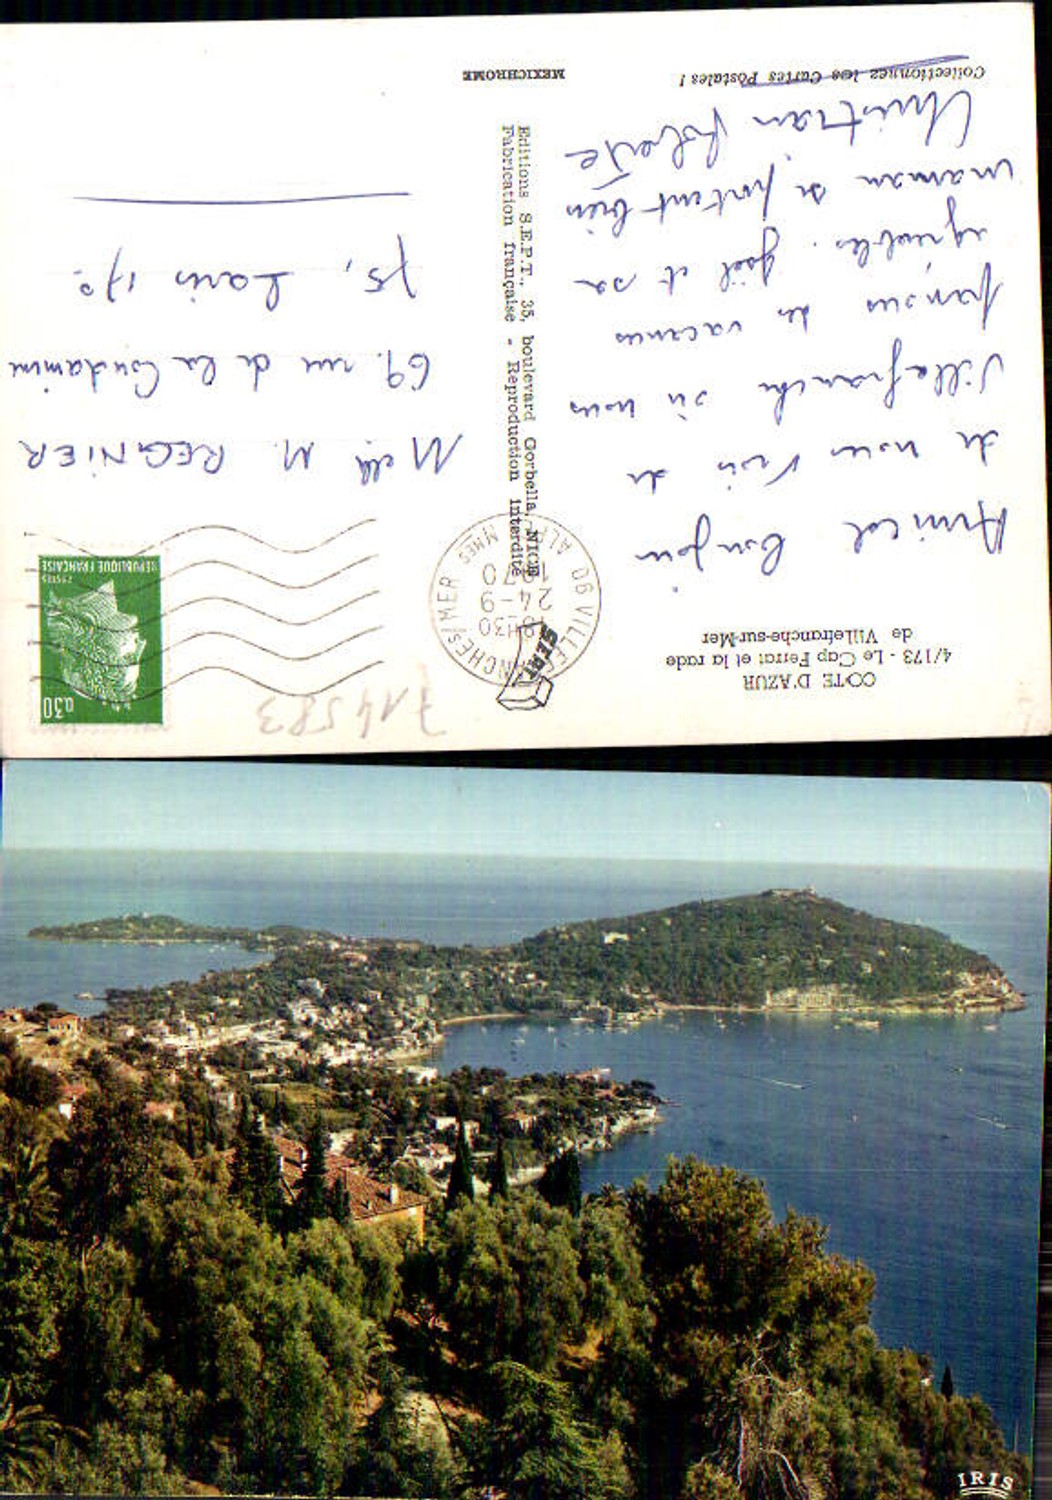 COTE D'AZUR
4/173 - Le Cap Ferrat et la rade
de Villefranche-sur-Mer
Amical bonjour
de nous trois de
Villefranche où nous
passons des vacances
agréables. Gaël et sa
maman se portent bien
Christian
Collectionnez les Cartes Postales !
Editions S.E.P.T., 35, boulevard Gorbella, NICE
Fabrication française - Reproduction interdite
MEXICHROME
06 VILLEFRANCHE S/MER
ALPES MMES
18H30
24-9
1970
SEPT
0,30
POSTES
REPUBLIQUE FRANÇAISE
714583
Melle M. REGNIER
69. rue de la Condamine
75, Paris 17°
IRIS